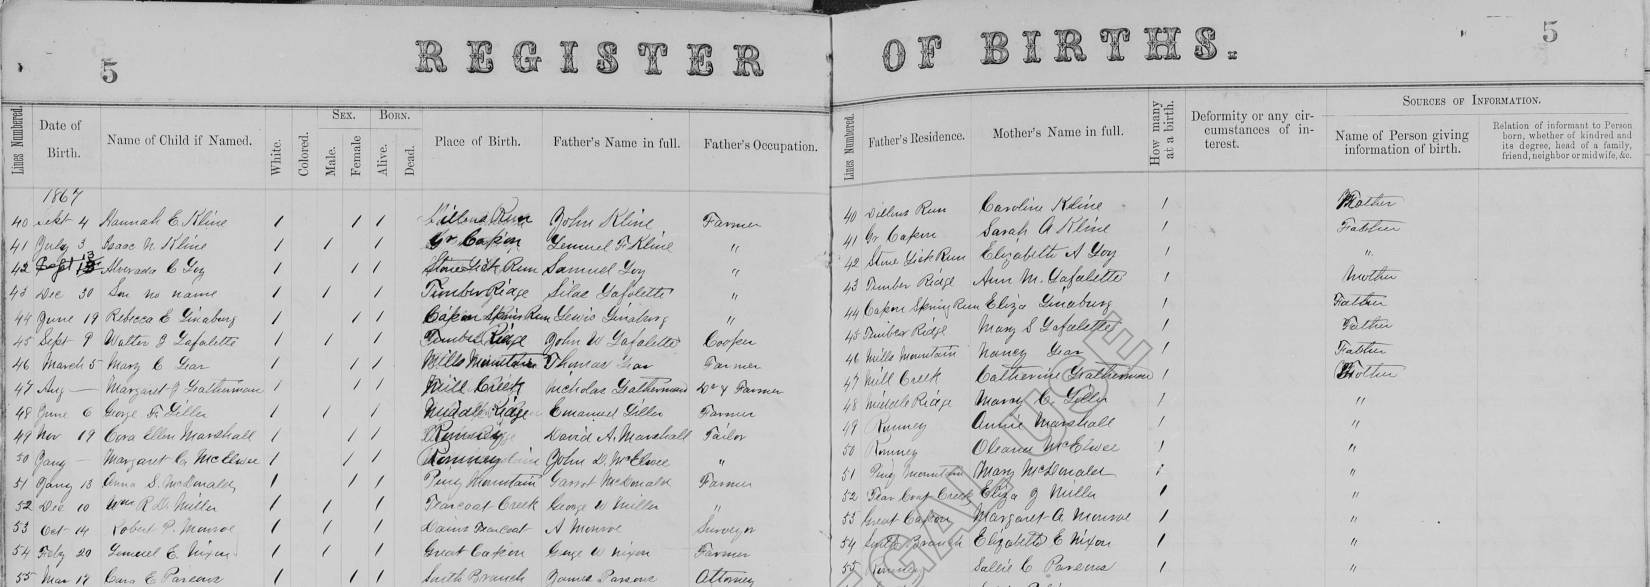 5 REGISTER OF BIRTHS. 5
Lines Numbered. Date of Birth. Name of Child if Named. White. Colored. Sex. Male. Female Born. Alive. Dead. Place of Birth. Father's Name in full. Father's Occupation. Lines Numbered. Father's Residence. Mother's Name in full. How many at a birth. Deformity or any circumstances of interest. Sources of Information. Name of Person giving information of birth. Relation of informant to Person born, whether of kindred and its degree, head of a family, friend, neighbor or midwife, &c.
1867
40 Sept 4 Hannah E. Kline 1 1 1 Dillons Run John Kline Farmer 40 Dillons Run Caroline Kline 1 Mother
41 July 3 Isaac N. Kline 1 1 1 Gr Capon Lemuel F Kline " 41 Gr Capon Sarah A Kline 1 Father
42 Sept 13 Alverado C Loy 1 1 1 Stone Lick Run Samuel Loy " 42 Stone Lick Run Elizabeth A Loy 1 "
43 Dec 30 Son no name 1 1 1 Timber Ridge Silas Lafolette " 43 Timber Ridge Ann M. Lafalette 1 Mother
44 June 19 Rebecca E Ginaburg 1 1 1 Capon Spring Run Lewis Ginaburg " 44 Capon Spring Run Eliza Ginaburg 1 Father
45 Sept 9 Walter Lafalette 1 1 1 Timber Ridge John W Lafalette Cooper 45 Timber Ridge Mary S Lafalette 1 Father
46 March 5 Mary C Gear 1 1 1 Mills Mountain Thomas Gear Farmer 46 Mills Mountain Nancy Gear 1 Father
47 Aug — Margaret J Leatherman 1 1 1 Mill Creek Nicholas Leatherman Dr & Farmer 47 Mill Creek Catherine Leatherman 1 Mother
48 June 6 George Fr Liller 1 1 1 Middle Ridge Emanuel Liller Farmer 48 Middle Ridge Mary C. Liller 1 "
49 Nov 19 Cora Ellen Marshall 1 1 1 Romney David A. Marshall Tailor 49 Romney Annie Marshall 1 "
50 Jany — Margaret McElwee 1 1 1 Romney John D. McElwee " 50 Romney McElwee 1 "
51 Jany 13 Anna S. McDonald 1 1 1 Piny Mountain Garrot McDonald Farmer 51 Piny Mountain Mary McDonald 1 "
52 Dec 10 Wm R Miller 1 1 1 Tearcoat Creek George W Miller " 52 Tear Coat Creek Eliza J Miller 1 "
53 Oct 14 Robert P. Monroe 1 1 1 Tearcoat A Monroe Surveyor 53 Great Capon Margaret A Monroe 1 "
54 Feby 20 Lemuel E. Nixon 1 1 1 Great Capon George W Nixon Farmer 54 South Branch Elizabeth E Nixon 1 "
55 Mar 17 Cara E Parsons 1 1 1 South Branch James Parsons Attorney 55 Romney Sallie C Parsons 1 "